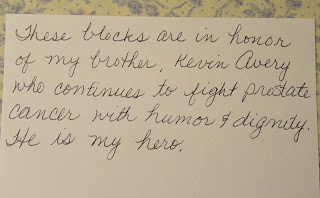 These blocks are in honor
of my brother, Kevin Avery
who continues to fight prostate
cancer with humor & dignity.
He is my hero.